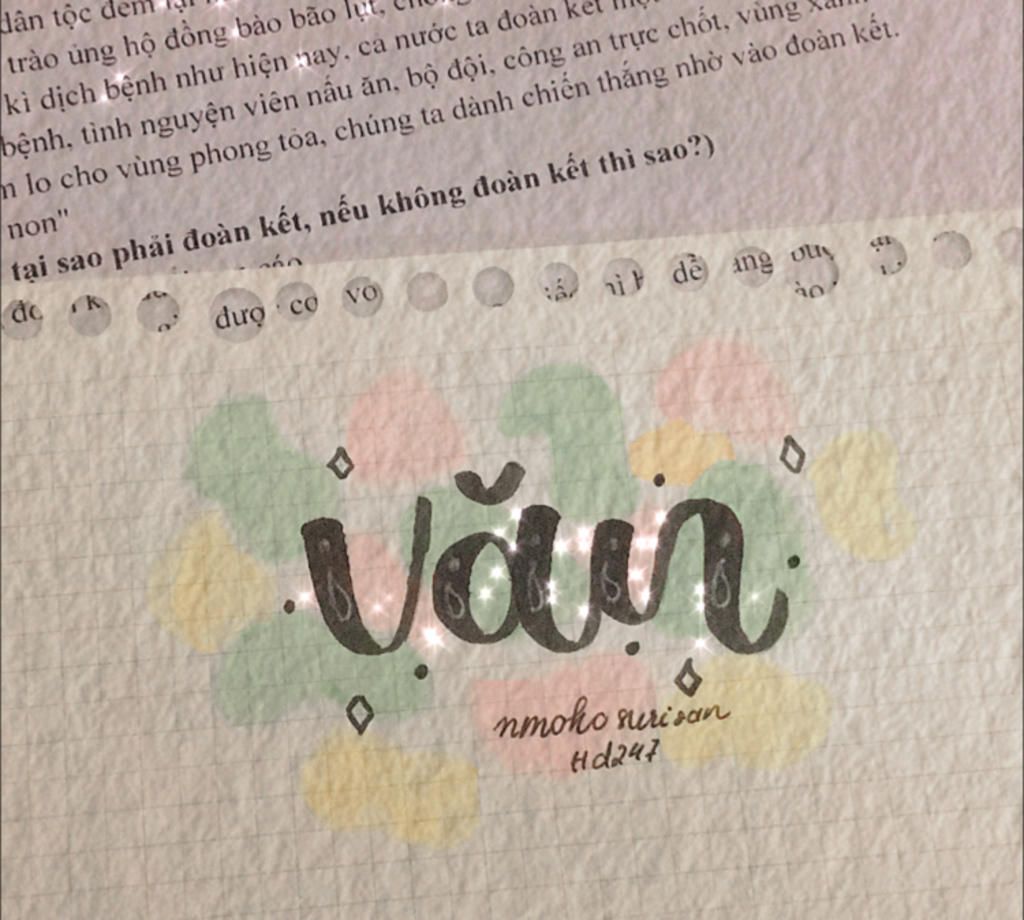 dân tộc đem lại
trào ủng hộ đồng bào bão lụt,
kì dịch bệnh như hiện nay, cả nước ta đoàn kết một
bệnh, tình nguyện viên nấu ăn, bộ đội, công an trực chốt, vùng xanh
lo cho vùng phong tỏa, chúng ta dành chiến thắng nhờ vào đoàn kết.
non"
tại sao phải đoàn kết, nếu không đoàn kết thì sao?)
đượ cơ vo dễ
văn
nmoko surisan
Hd247